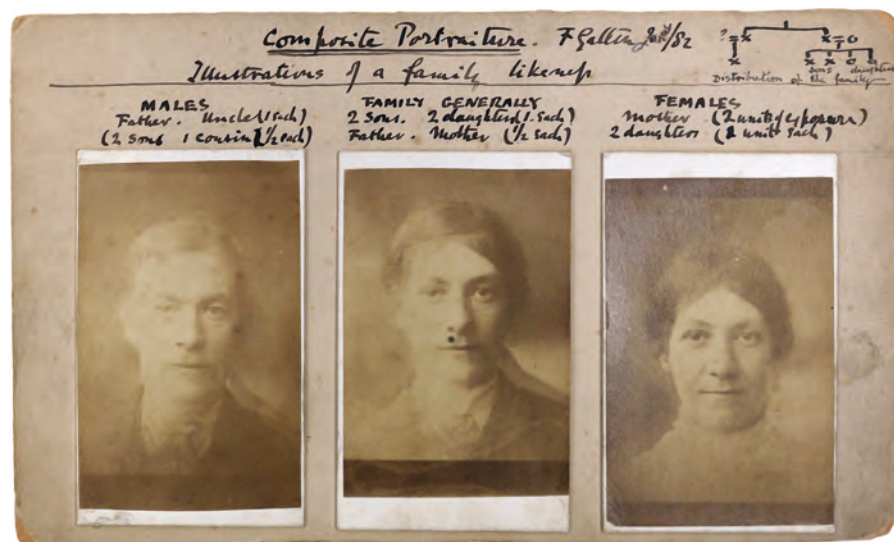 Composite Portraiture. F Galton /82
Illustrations of a family likeness
? = x x = o
x x x o o
sons daughters
Distribution of the family
MALES
Father. Uncle (1 each)
(2 sons 1 cousin (1/2 each)
FAMILY GENERALLY
2 sons. 2 daughters (1. each)
Father. Mother (1/2 each)
FEMALES
Mother (2 units of exposure)
2 daughters (1 unit each)